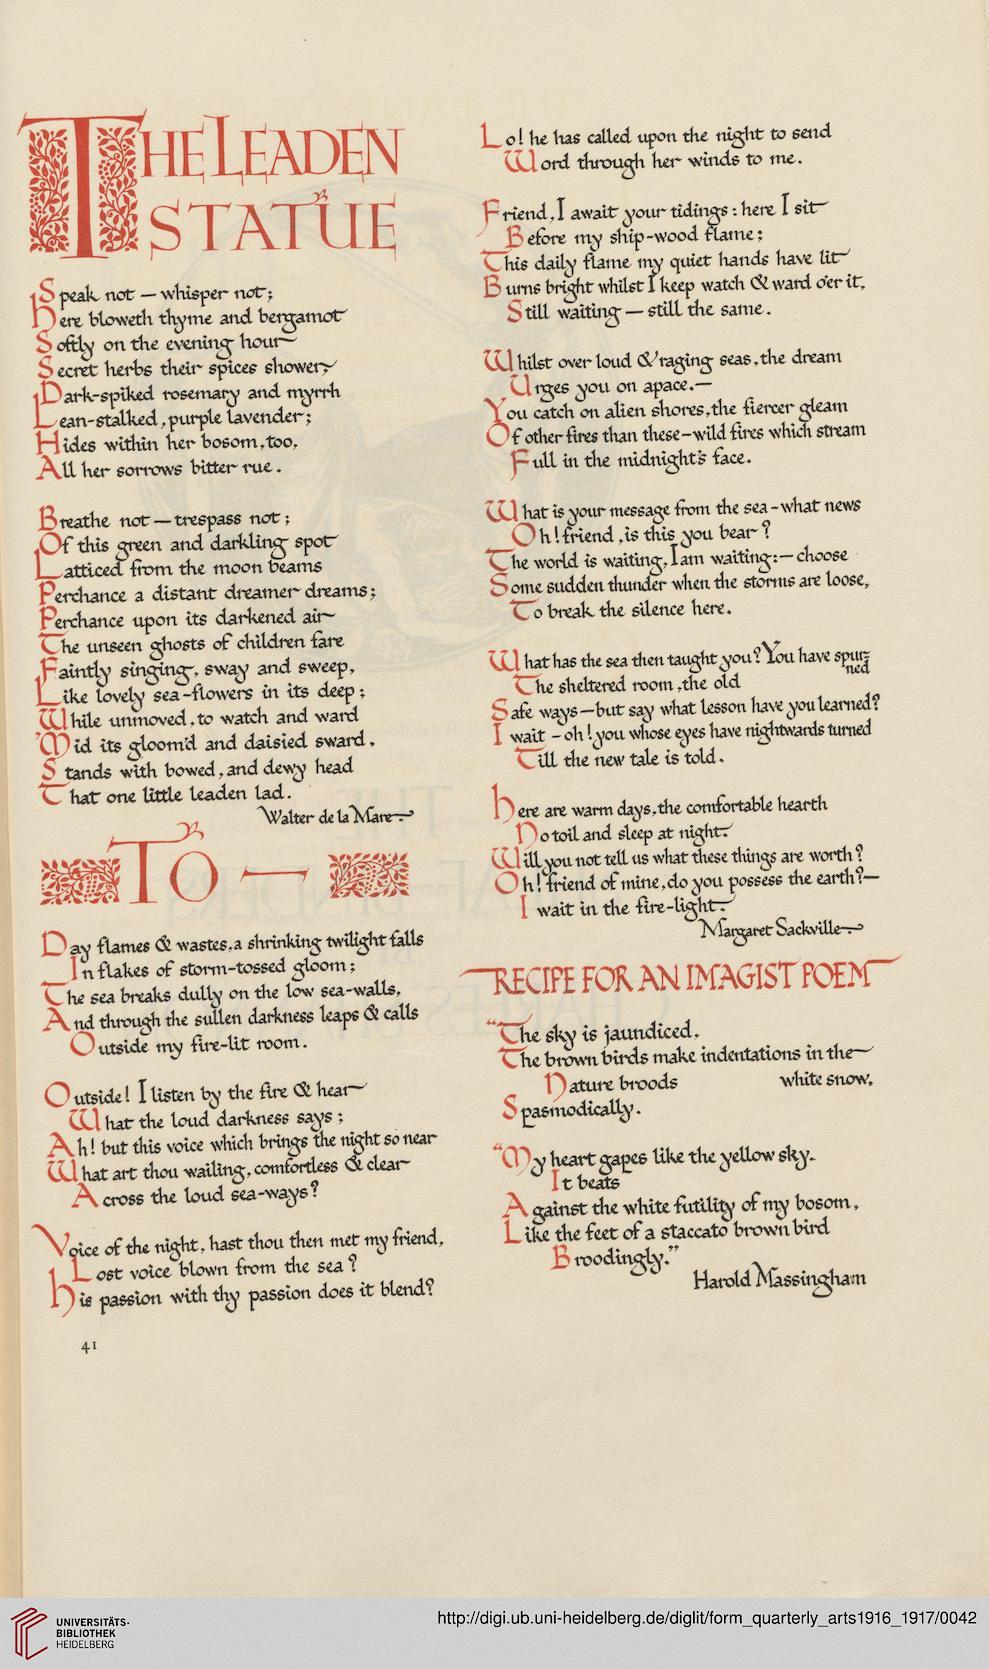 THE LEADEN
STATUE
Speak not — whisper not;
Here bloweth thyme and bergamot
Softly on the evening hour
Secret herbs their spices shower,
Dark-spiked rosemary and myrrh
Lean-stalked, purple lavender;
Hides within her bosom, too,
All her sorrows bitter rue.
Breathe not — trespass not;
Of this green and darkling spot
Latticed from the moon beams
Perchance a distant dreamer dreams;
Perchance upon its darkened air
The unseen ghosts of children fare
Faintly singing, sway and sweep,
Like lovely sea-flowers in its deep;
While unmoved, to watch and ward
'Mid its gloom'd and daisied sward,
Stands with bowed, and dewy head
That one little leaden lad.
Walter de la Mare
TO —
Day flames & wastes, a shrinking twilight falls
In flakes of storm-tossed gloom;
The sea breaks dully on the low sea-walls,
And through the sullen darkness leaps & calls
Outside my fire-lit room.
Outside! I listen by the fire & hear
What the loud darkness says;
Ah! but this voice which brings the night so near
What art thou wailing, comfortless & clear
Across the loud sea-ways?
Voice of the night, hast thou then met my friend,
Lost voice blown from the sea?
His passion with thy passion does it blend?
41
Lo! he has called upon the night to send
Word through her winds to me.
Friend, I await your tidings: here I sit
Before my ship-wood flame;
This daily flame my quiet hands have lit
Burns bright whilst I keep watch & ward o'er it,
Still waiting — still the same.
Whilst over loud & raging seas, the dream
Urges you on apace.—
You catch on alien shores, the fiercer gleam
Of other fires than these–wild fires which stream
Full in the midnight's face.
What is your message from the sea - what news
Oh! friend, is this you bear?
The world is waiting, I am waiting:— choose
Some sudden thunder when the storms are loose,
To break the silence here.
What has the sea then taught you? You have spur-
ned
The sheltered room, the old
Safe ways—but say what lesson have you learned?
I wait - oh! you whose eyes have nightwards turned
Till the new tale is told.
Here are warm days, the comfortable hearth
No toil and sleep at night.
Will you not tell us what these things are worth?
Oh! friend of mine, do you possess the earth?—
I wait in the fire-light.
Margaret Sackville
RECIPE FOR AN IMAGIST POEM
"The sky is jaundiced,
The brown birds make indentations in the
Nature broods white snow,
Spasmodically.
"My heart gapes like the yellow sky.
It beats
Against the white futility of my bosom,
Like the feet of a staccato brown bird
Broodingly."
Harold Massingham
UNIVERSITÄTS-
BIBLIOTHEK
HEIDELBERG
http://digi.ub.uni-heidelberg.de/diglit/form_quarterly_arts1916_1917/0042